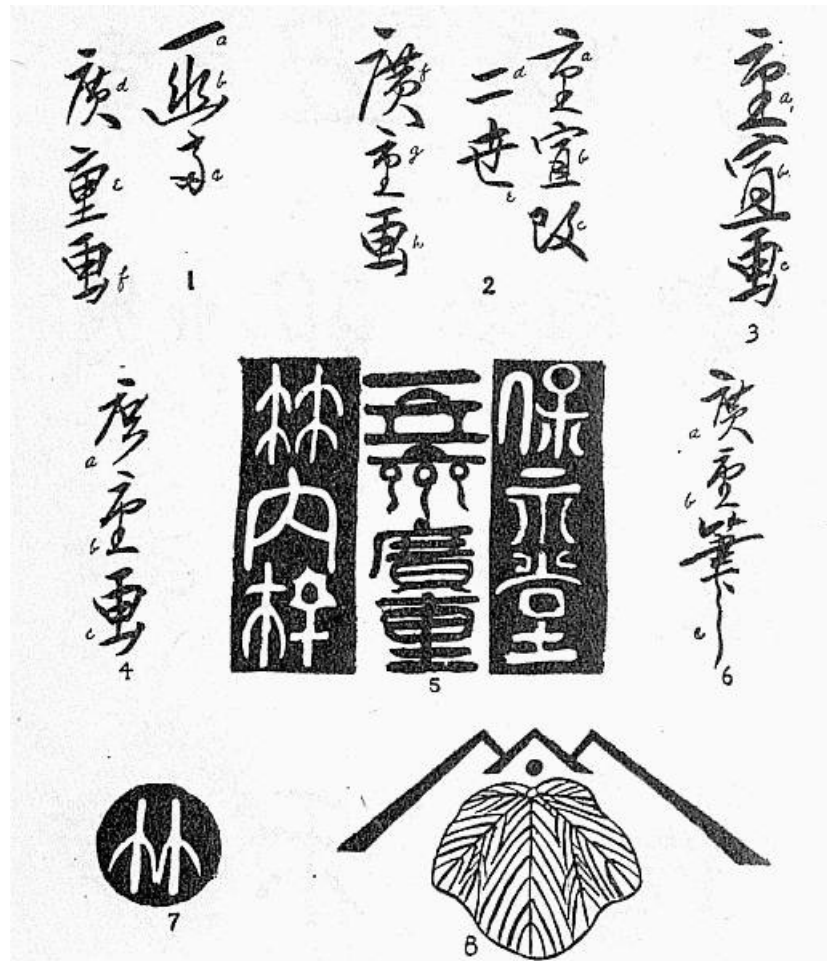 一 a 幽 b 斎 c
廣 d 重 e 画 f
1
重 a 宣 b 改 c
二 d 世 e
廣 f 重 g 画 h
2
重 a 宣 b 画 c
3
廣 a 重 b 画 c
4
保永堂
一立齋廣重
竹内梓
5
廣 a 重 b 筆 c
6
竹
7
8